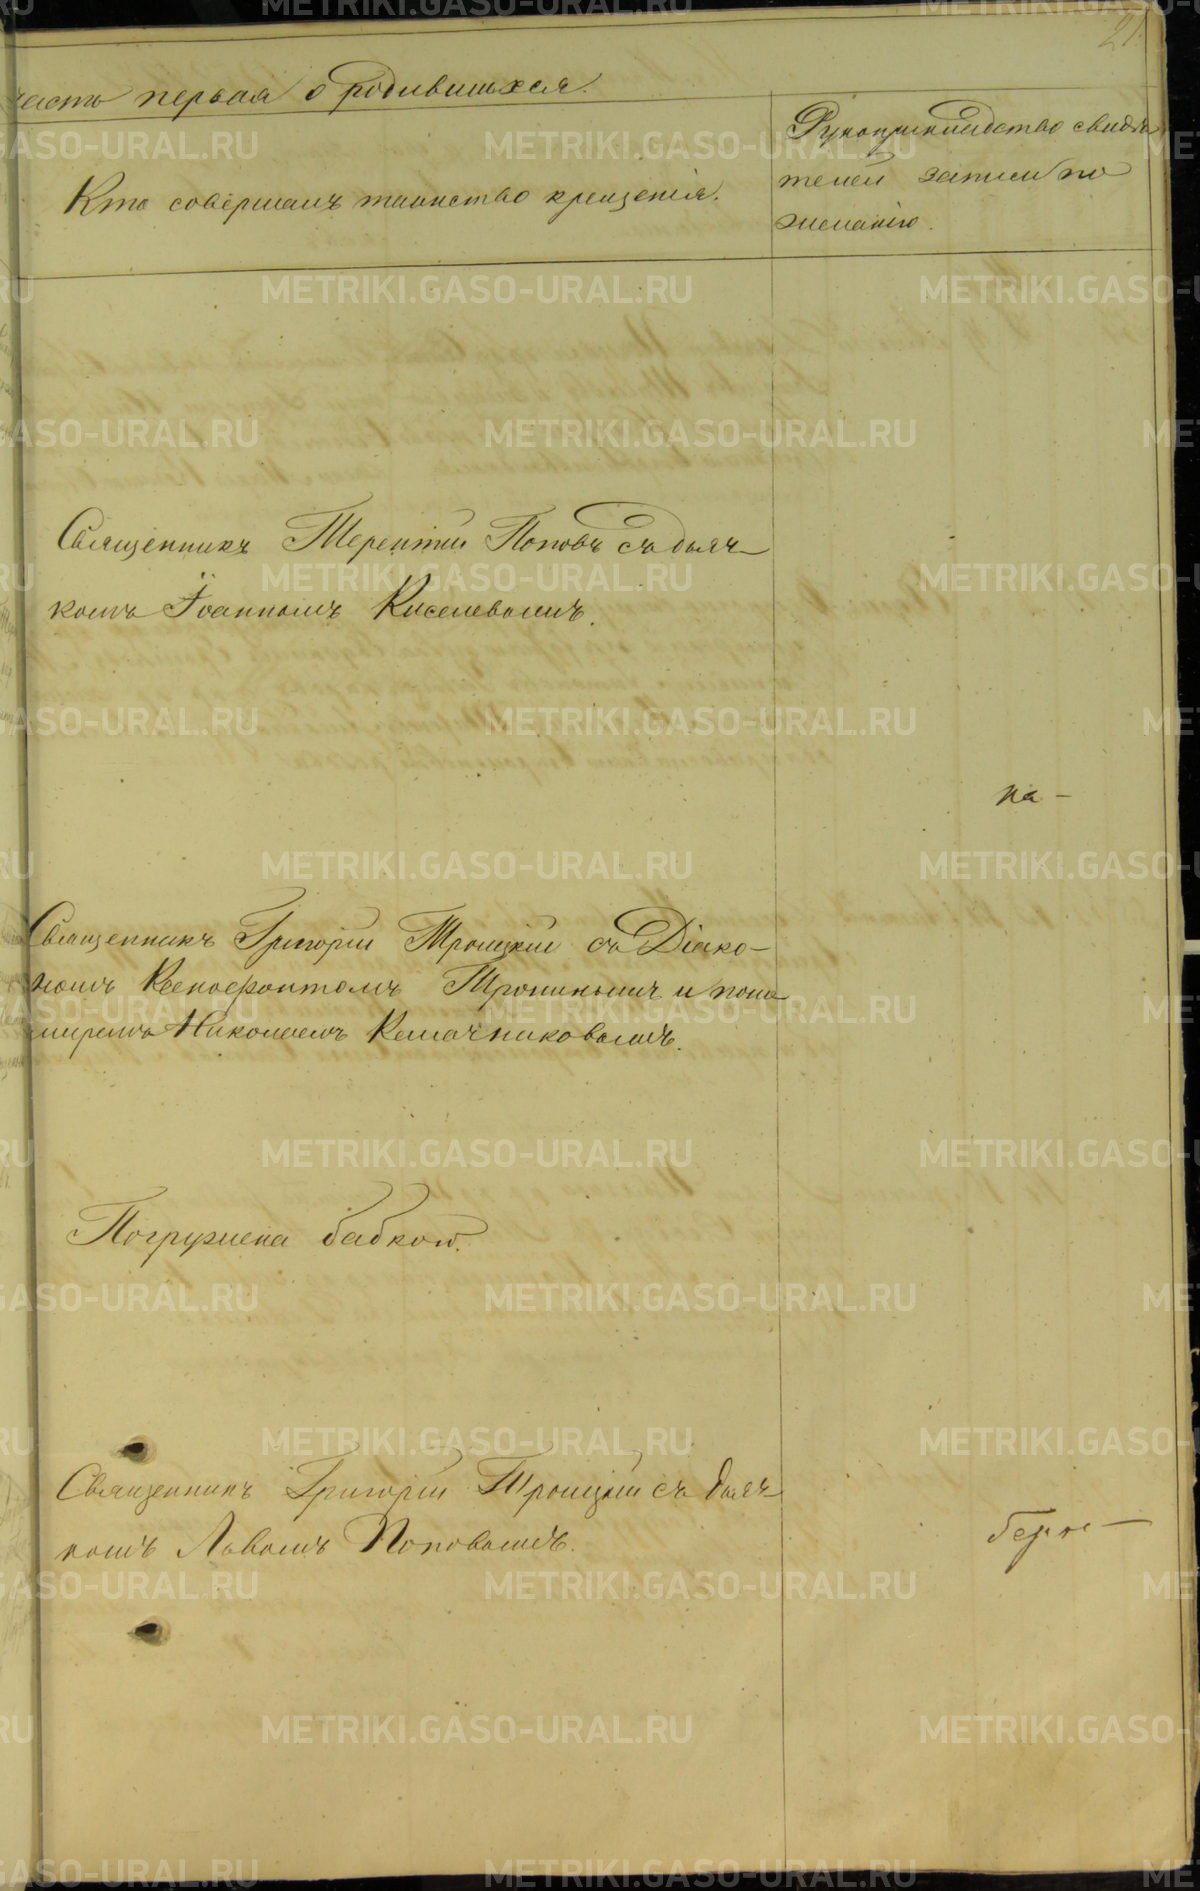 21.
часть первая о родившихся.
Кто совершалъ таинство крещенія.
Рукоприкладство свидѣ
телей записи по
желанію.
Священникъ Терентій Поповъ съ дьяч-
комъ Іоанномъ Киселевымъ.
на-
Священникъ Григорій Троицкій съ Діако-
номъ Ксенофонтомъ Тропинымъ и поно
миремъ Николаемъ Калачниковымъ.
Погружена бабкою.
Священникъ Григорій Троицкій съ дьяч-
комъ Львомъ Поповымъ.
METRIKI.GASO-URAL.RU